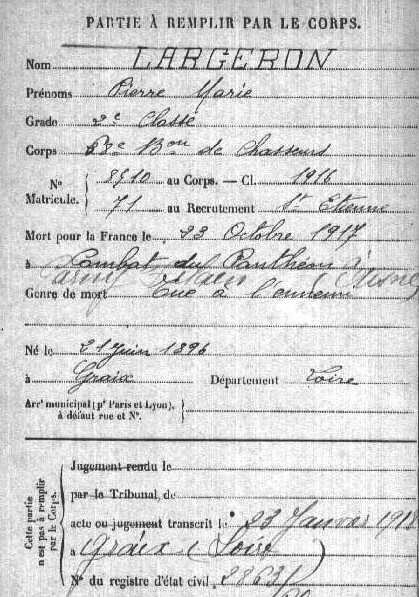 PARTIE À REMPLIR PAR LE CORPS.
Nom LARGERON
Prénoms Pierre Marie
Grade 2e Classe
Corps Bon de Chasseurs
No Matricule. 8510 au Corps. — Cl. 1916
71 au Recrutement St Etienne
Mort pour la France le 23 Octobre 1917
à Combat du Panthéon à
(Aisne)
Genre de mort Tué à l'ennemi
Né le 21 Juin 1896
à Graix Département Loire
Arrt municipal (pr Paris et Lyon), à défaut rue et No.
Cette partie n'est pas à remplir par le Corps.
Jugement rendu le
par le Tribunal de
acte ou jugement transcrit le 23 Janvier 1918
à Graix (Loire)
No du registre d'état civil